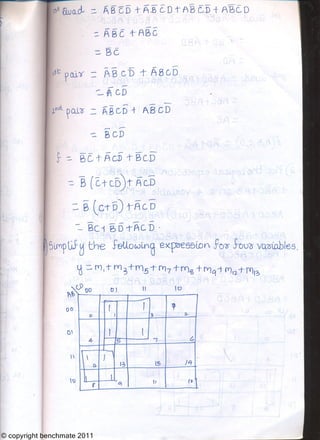 1st Quad = A̅B̅C̅D̅ + A̅B̅C̅D + AB̅C̅D̅ + AB̅C̅D
= A̅B̅C̅ + AB̅C̅
= B̅C̅
1st pair = A̅B̅CD̅ + A̅BCD̅
= A̅CD̅
2nd pair = A̅B̅CD̅ + AB̅CD̅
= B̅CD̅
f = B̅C̅ + A̅CD̅ + B̅CD̅
= B̅(C̅+CD̅) + A̅CD̅
= B̅(C̅+D̅) + A̅CD̅
= B̅C̅ + B̅D̅ + A̅CD̅.
Simplify the following expression for four variables.
y = m1 + m3 + m5 + m7 + m8 + m9 + m12 + m13
AB CD 00 01 11 10
00 0 1 1 1 3 2
01 4 1 5 1 7 6
11 1 1 13 15 14
10 8 1 9 11 10
© copyright benchmate 2011